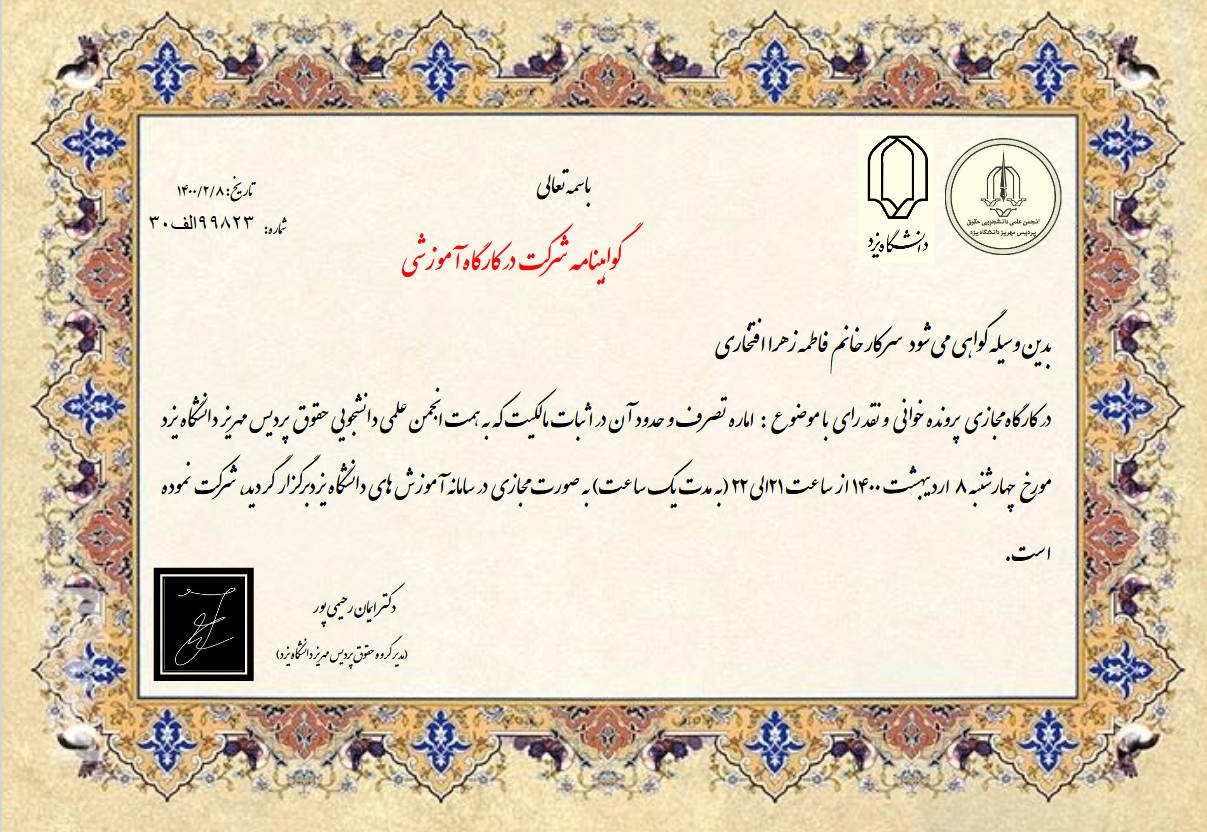 انجمن علمی دانشجویی حقوق
پردیس مهریز دانشگاه یزد
دانشگاه یزد
باسمه تعالی
تاریخ: ۱۴۰۰/۲/۸
شماره: ۹۹۸۲۳الف۳۰
گواهینامه شرکت در کارگاه آموزشی
بدین وسیله گواهی می شود سرکار خانم فاطمه زهرا افتخاری
در کارگاه مجازی پرونده خوانی و نقد رای با موضوع : اماره تصرف و حدود آن در اثبات مالکیت که به همت انجمن علمی دانشجویی حقوق پردیس مهریز دانشگاه یزد
مورخ چهارشنبه ۸ اردیبهشت ۱۴۰۰ از ساعت ۲۱الی ۲۲ (به مدت یک ساعت) به صورت مجازی در سامانه آموزش های دانشگاه یزد برگزار گردید، شرکت نموده
است.
دکتر ایمان رحیمی پور
(مدیر گروه حقوق پردیس مهریز دانشگاه یزد)